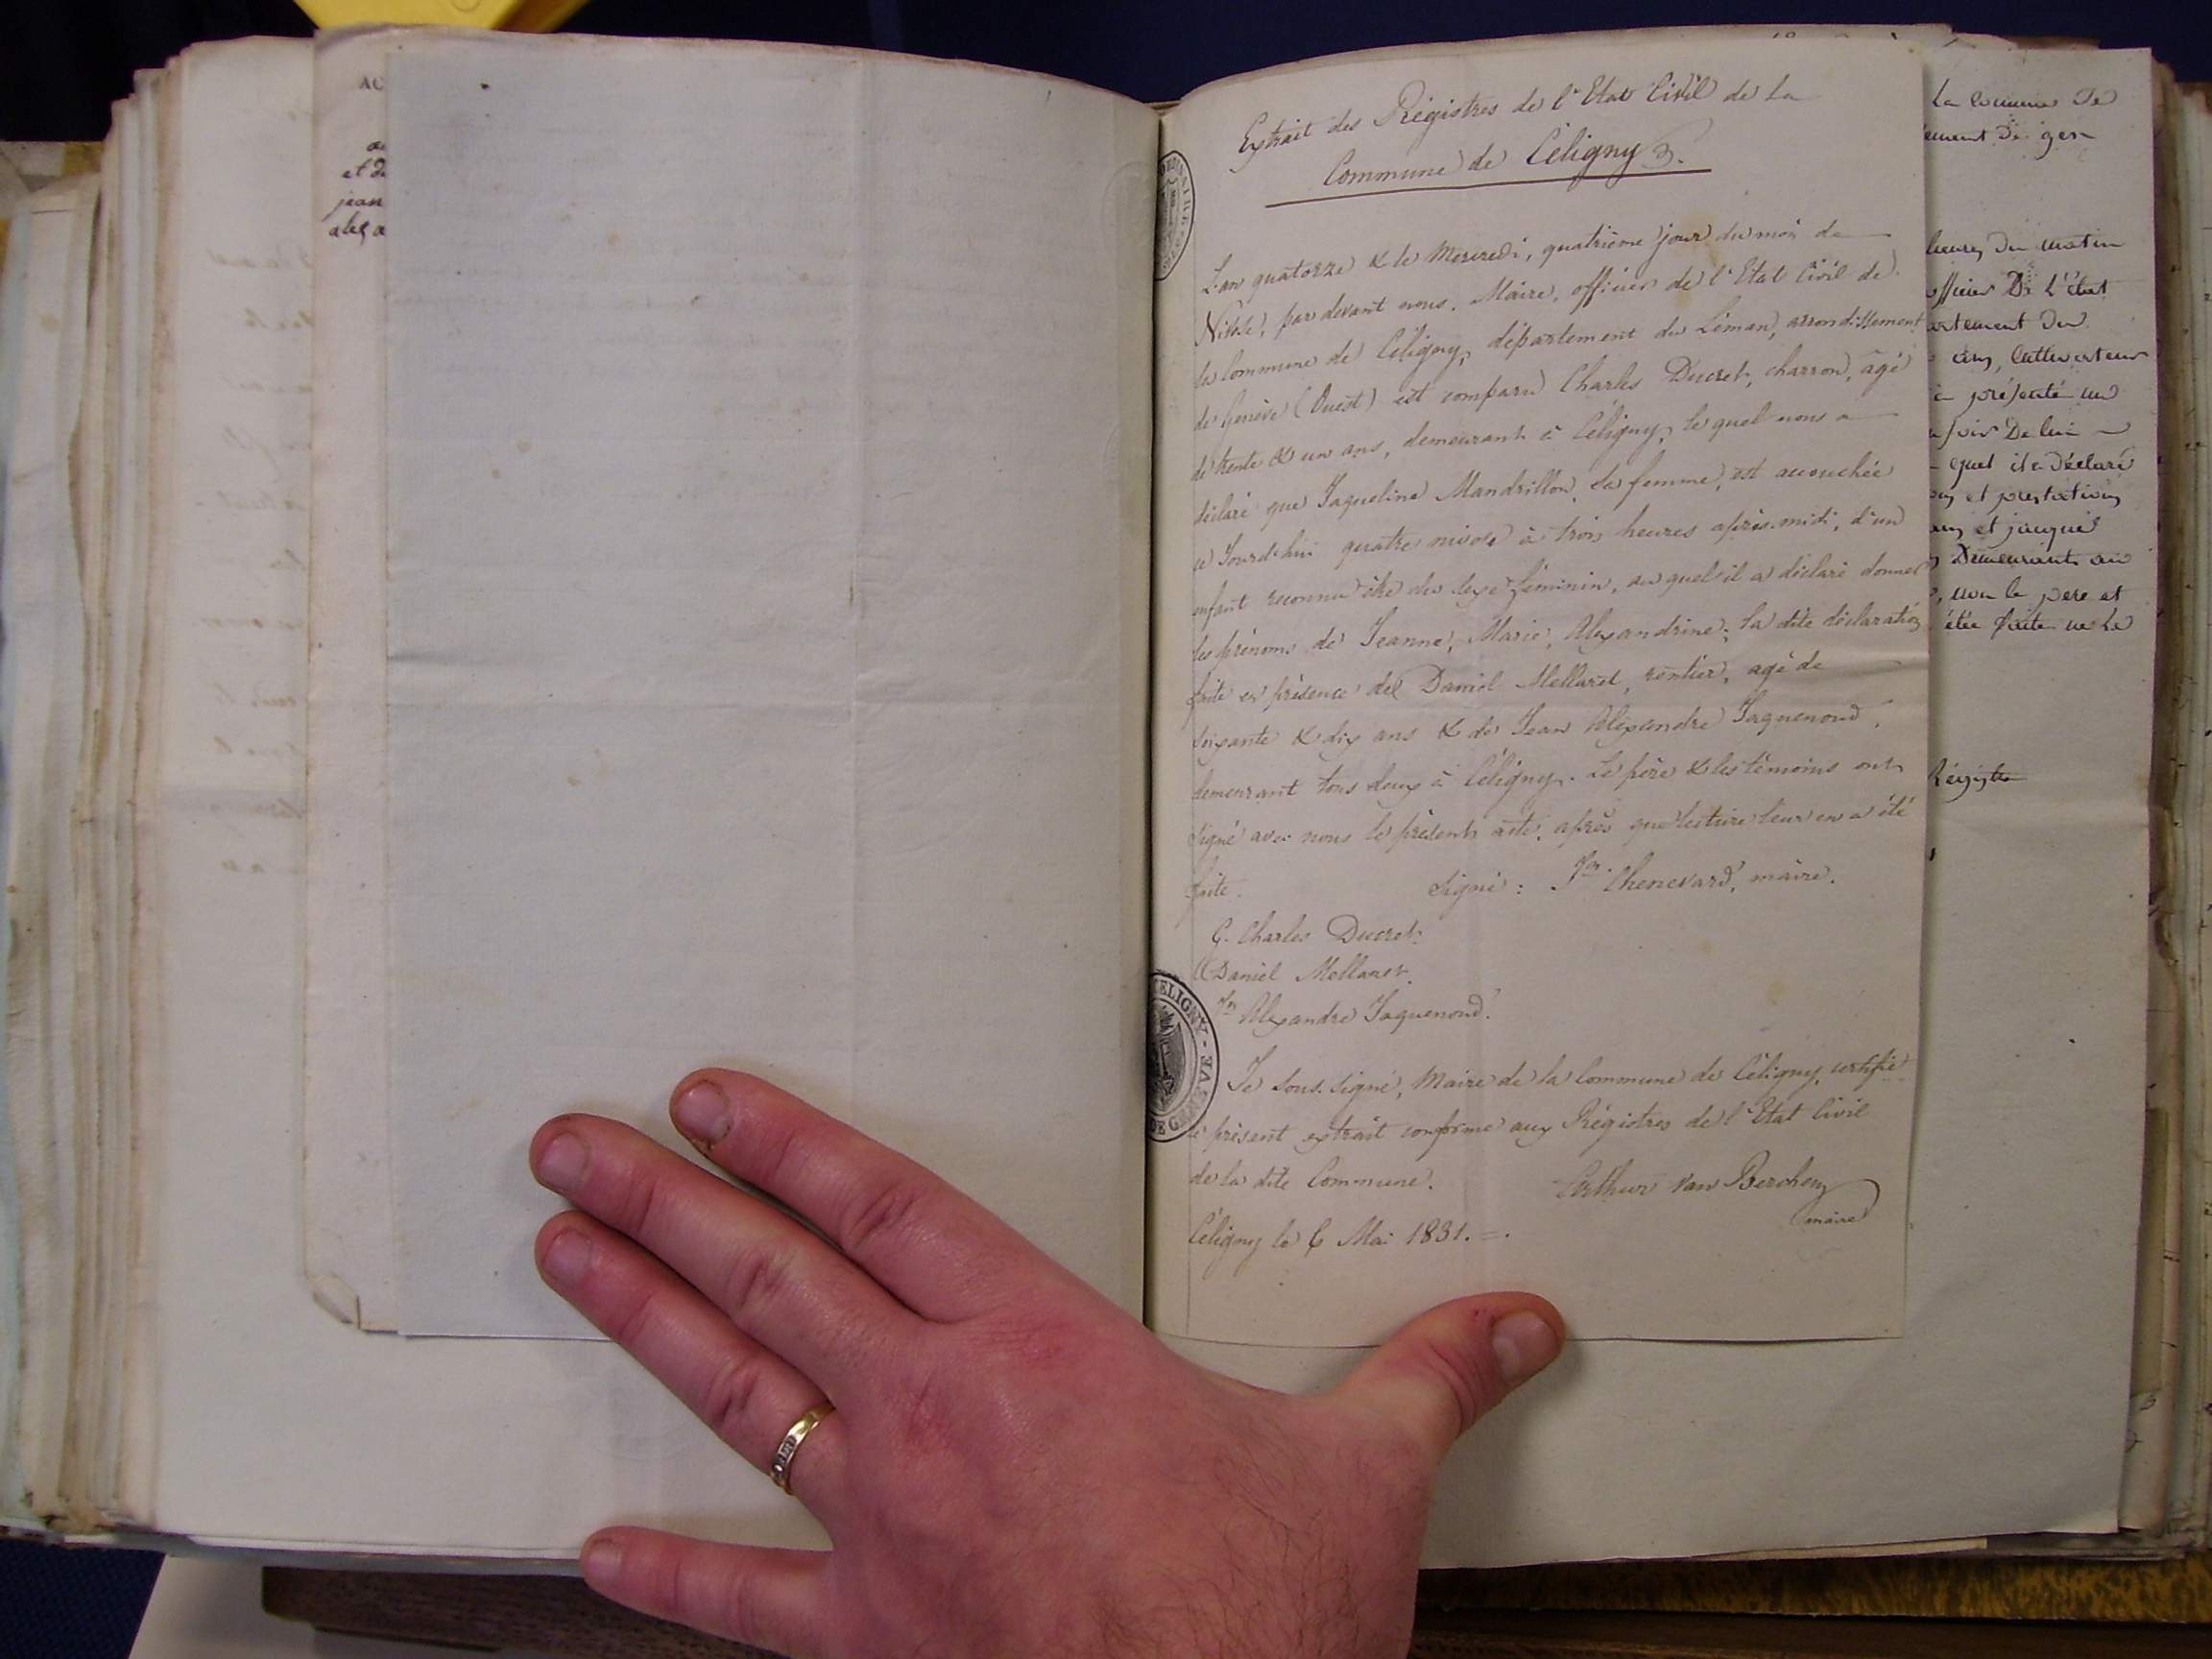 AC
et de
jean
Extrait des Régistres de l'Etat Civil de la
Commune de Céligny.
L'an quatorze & le Mercredi, quatrième jour du mois de
Nivôse, par devant nous, Maire, officier de l'Etat Civil de
la Commune de Céligny, département du Léman, arrondissement
de Genève (Ouest) est comparu Charles Ducret, charron, âgé
de trente & un ans, demeurant à Céligny, lequel nous a
déclaré que Jaqueline Mandrillon, sa femme, est accouchée
ce Jourd'hui quatre nivose à trois heures après-midi, d'un
enfant reconnu être du sexe féminin, auquel il a déclaré donner
les prénoms de Jeanne, Marie, Alexandrine; la dite déclaration
faite en présence de Daniel Mellaret, rentier, agé de
soixante & dix ans & de Jean Alexandre Jaquenoud,
demeurant tous deux à Céligny. Le père & les témoins ont
signé avec nous le présent acte, après que lecture leur en a été
faite. Signé: Jn. Chenevard, maire.
G. Charles Ducret.
Daniel Mellaret.
Jn Alexandre Jaquenoud.
Je sous-signé, Maire de la Commune de Céligny, certifie
le présent extrait conforme aux Régistres de l'Etat Civil
de la dite Commune. Arthur van Berchem
maire
Céligny le 6 Mai 1831.
CELIGNY - DE GENEVE
la commune de
heures du matin
officier De L'état
artement Du
ans, Cultivateur
a présenté un
quel il a Déclaré
et prestations
et jaques
Demeurants au
le pere et
été faite ne le
Régistre